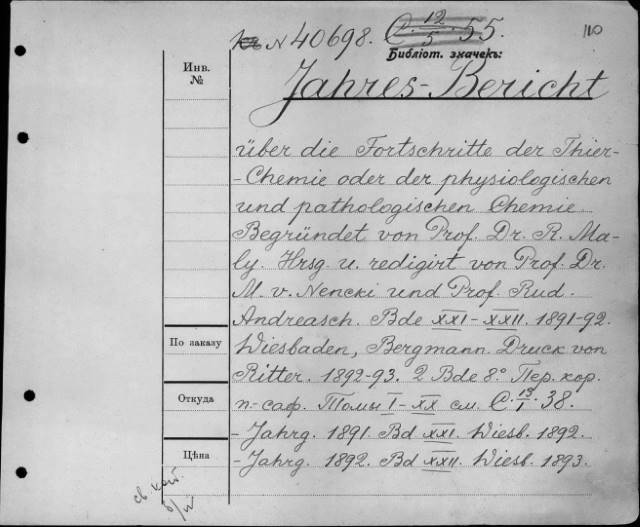 № 40698. C. 12/5. 55. 110
Библіот. значекъ:
Инв.
№
Jahres-Bericht
über die Fortschritte der Thier-
-Chemie oder der physiologischen
und pathologischen Chemie.
Begründet von Prof. Dr. R. Ma-
ly. Hrsg. u. redigirt von Prof. Dr.
M. v. Nencki und Prof. Rud.
Andreasch. Bde XXI-XXII. 1891-92.
По заказу
Wiesbaden, Bergmann. Druck von
Ritter. 1892-93. 2 Bde 8° Пер. кор.
Откуда
п-саф. Томы I-XX см. C. 13/1. 38.
- Jahrg. 1891. Bd XXI. Wiesb. 1892.
Цѣна
- Jahrg. 1892. Bd XXII. Wiesb. 1893.